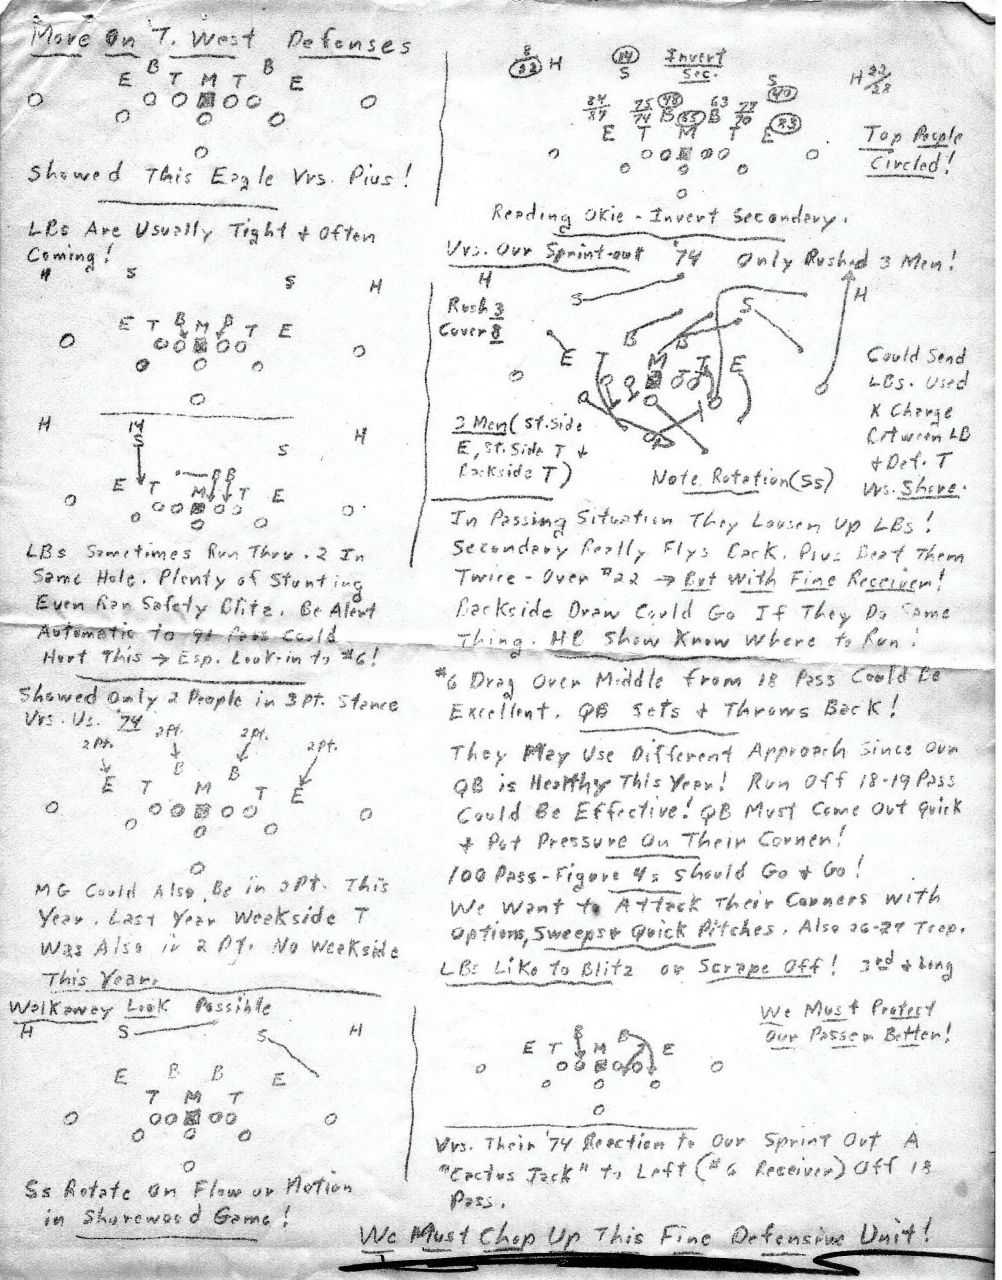 More On T. West Defenses
B B
E T M T E
Showed This Eagle Vrs. Pius!
LBs Are Usually Tight + Often
Coming!
H S S H
E T B M B T E
H 14 H
S S
B B
E T M T E
LBs Sometimes Run Thru. 2 In
Same Hole. Plenty of Stunting
Even Ran Safety Blitz. Be Alert
Automatic to 91 Pass Could
Hurt This → Esp. Look-in to #6!
Showed Only 2 People in 3 Pt. Stance
Vrs. Us. '74
2 Pt. 2 Pt. 2 Pt. 2 Pt.
B B
E T M T E
MG Could Also Be in 2 Pt. This
Year. Last Year Weakside T
Was Also in 2 Pt. No Weakside
This Year.
Walkaway Look Possible
H S S H
E B B E
T M T
Ss Rotate On Flow or Motion
in Shorewood Game!
8 14 Invert
22 H S Sec. S H 22
28
40
84 75 48 63 78
87 74 B 65 B 70 83
E T M T E
Top People
Circled!
Reading Okie - Invert Secondary.
Vrs. Our Sprint-out '74 Only Rushed 3 Men!
H S S H
Rush 3
Cover 8
B B
E T M T E
3 Men (St. Side
E, St. Side T +
Backside T)
Could Send
LBs. Used
X Charge
Between LB
+ Def. T
Vrs. Shore.
Note Rotation (Ss)
In Passing Situation They Loosen Up LBs!
Secondary Really Flys Back. Pius Beat Them
Twice - Over #22 → But With Fine Receiver!
Backside Draw Could Go If They Do Same
Thing. HB Show Know Where to Run!
#6 Drag Over Middle from 18 Pass Could Be
Excellent. QB Sets + Throws Back!
They May Use Different Approach Since Our
QB is Healthy This Year! Run Off 18-19 Pass
Could Be Effective! QB Must Come Out Quick
+ Put Pressure On Their Corner!
100 Pass - Figure 4s Should Go + Go!
We Want to Attack Their Corners with
Options, Sweeps + Quick Pitches. Also 26-27 Trap.
LBs Like to Blitz or Scrape Off! 3rd + Long
We Must Protect
Our Passer Better!
B B
E T M E
Vrs. Their '74 Reaction to Our Sprint Out A
"Cactus Jack" to Left (#6 Receiver) Off 18
Pass.
We Must Chop Up This Fine Defensive Unit!